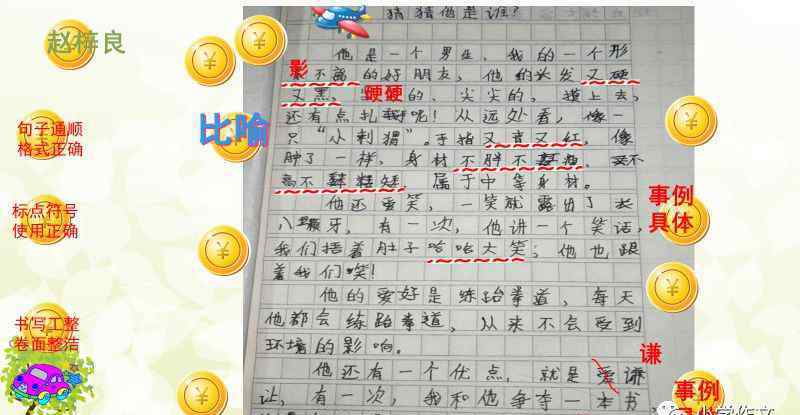 赵梓良
句子通顺
格式正确
标点符号
使用正确
书写工整
卷面整洁
比喻
猜猜他是谁？
他是一个男生，我的一个形
影
不离的好朋友，他的头发又硬
又黑，
硬硬
的、尖尖的，摸上去，
还有点扎手呢！从远处看，像一
只“小刺猬”。手指又直又红，像
肿了一样，身材不胖不
高不
属于中等身材。
他还爱笑，一笑就露出了
八颗牙，有一次，他讲一个笑话，
我们捂着肚子哈哈大笑；他也跟
着我们笑！
他的爱好是练跆拳道，每天
他都会练跆拳道，从来不会受到
环境的影响。
他还有一个优点，就是爱谦
谦
让，有一次，我和他争夺一本书，
事例
具体
事例
小学作文